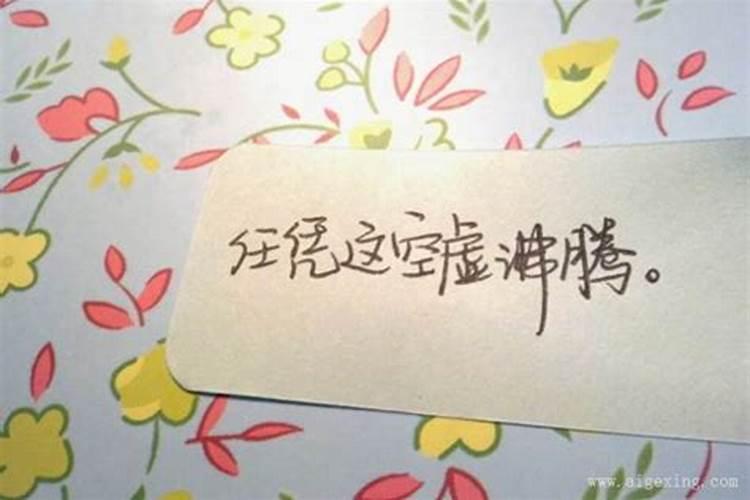 任凭这空虚沸腾。
www.aigexing.com